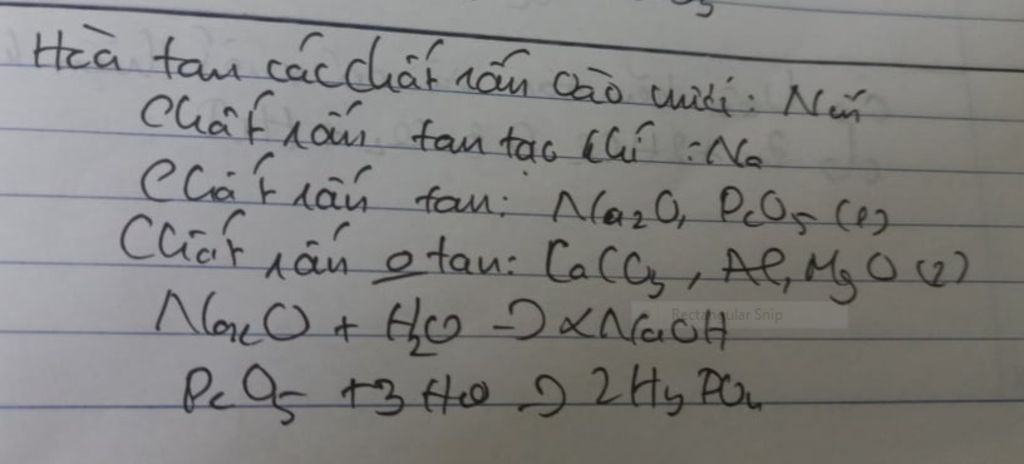 Hoà tan các chất rắn vào nước:
Chất rắn tan tạo khí : Na
Chất rắn tan: Na2O, P2O5 (1)
Chất rắn o tan: CaCO3, Al, MgO (2)
Na2O + H2O → 2NaOH
Rectangular Snip
P2O5 + 3 H2O → 2 H3PO4